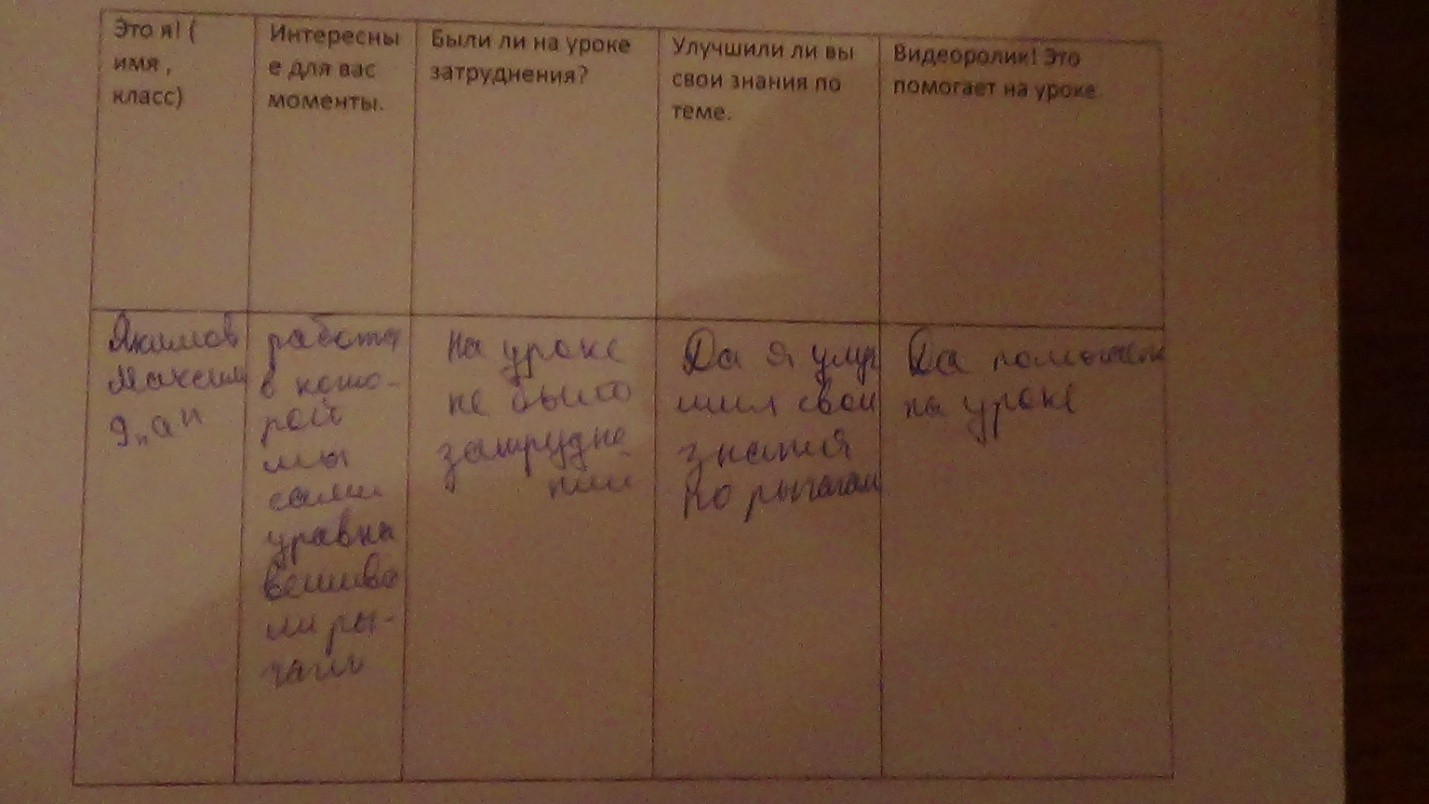 Это я! (
имя ,
класс)
Интересны
е для вас
моменты.
Были ли на уроке
затруднения?
Улучшили ли вы
свои знания по
теме.
Видеоролик! Это
помогает на уроке.
Якимов
Максим
9 „а"
работа
в кото-
рой
мы
сами
уравна
вешива
ли ры-
чаги
На уроке
не было
затрудне
ний
Да я улуч
шил свои
знания
по рычагам
Да помогает
на уроке